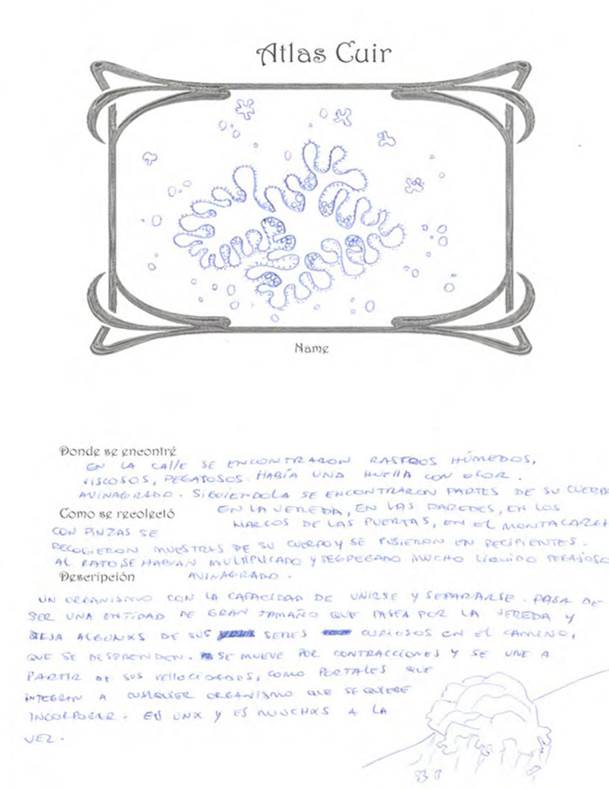 Atlas Cuir
Name
Donde se encontré
EN LA CALLE SE ENCONTRARON RASTROS HÚMEDOS,
VISCOSOS, PEGAJOSOS. HABÍA UNA HUELLA CON OLOR.
AVINAGRADO. SIGUIENDOLA SE ENCONTRARON PARTES DE SU CUERPO
EN LA VEREDA, EN LAS PAREDES, EN LOS
Como se recolectó
MARCOS DE LAS PUERTAS, EN EL MONTACARGA
CON PINZAS SE
RECOGIERON MUESTRAS DE SU CUERPO Y SE PUSIERON EN RECIPIENTES.
AL RATO SE HABÍAN MULTIPLICADO Y MUCHO LÍQUIDO PEGAJOSO
Descripción
AVINAGRADO.
UN ORGANISMO CON LA CAPACIDAD DE UNIRSE Y SEPARARSE. PASA DE
SER UNA ENTIDAD DE GRAN TAMAÑO QUE PASEA POR LA VEREDA Y
DEJA ALGUNXS DE SUS SERES CURIOSOS EN EL CAMINO,
QUE SE DESPRENDEN. SE MUEVE POR CONTRACCIONES Y SE UNE A
PARTIR DE SUS VELLOCIDADES, COMO PORTALES QUE
INTEGRAN A CUALQUIER ORGANISMO QUE SE QUIERE
INCORPORAR. ES UNX Y ES MUNCHXS A LA
VEZ.